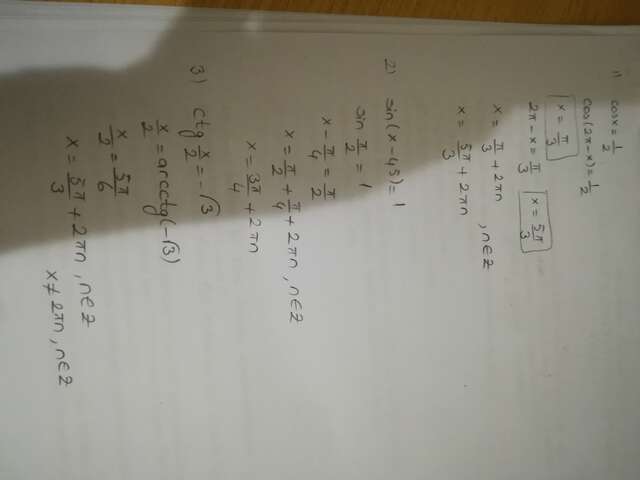 1) cosx = 1/2
cos(2π-x) = 1/2
x = π/3
2π - x = π/3   x = 5π/3
x = π/3 + 2πn
, n∈Z
x = 5π/3 + 2πn
2) sin(x-45) = 1
sin π/2 = 1
x - π/4 = π/2
x = π/2 + π/4 + 2πn, n∈Z
x = 3π/4 + 2πn
3) ctg x/2 = -√3
x/2 = arcctg(-√3)
x/2 = 5π/6
x = 5π/3 + 2πn, n∈Z
x ≠ 2πn, n∈Z